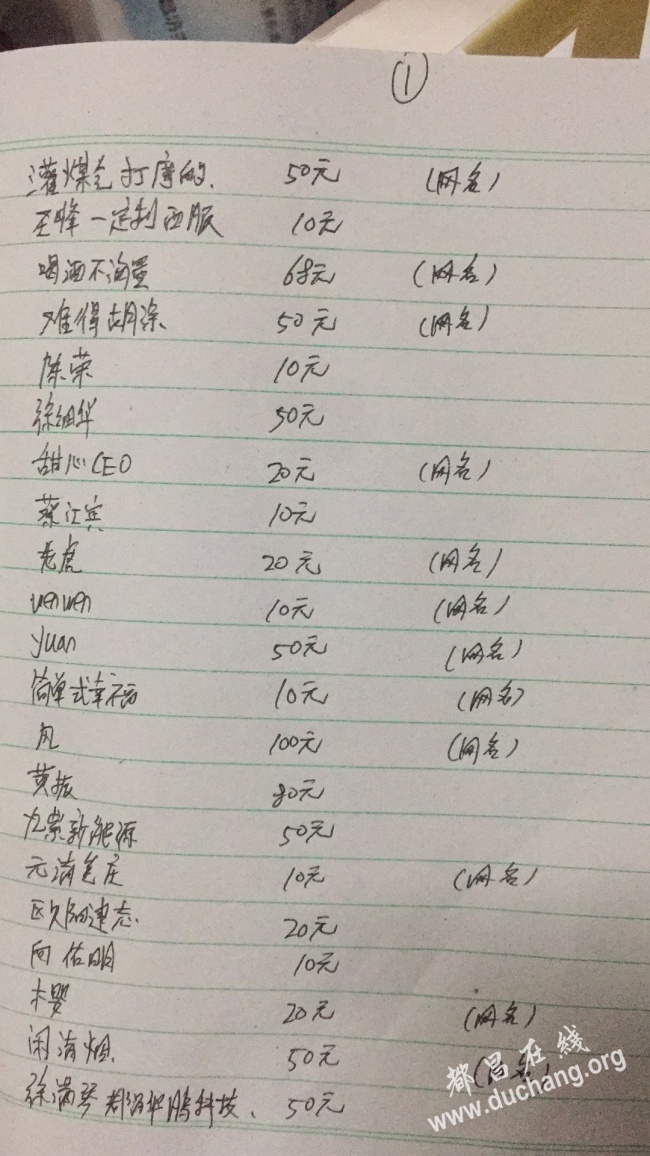 ①
灌煤气打摩的. 50元 (网名)
王峰一定制西服 10元
喝酒不淘量 68元 (网名)
难得胡涂 50元 (网名)
陈荣 10元
徐细华 50元
甜心CEO 20元 (网名)
蔡江宾 10元
老虎 20元 (网名)
wenwen 10元 (网名)
yuan 50元 (网名)
简单式幸福 10元 (网名)
凡 100元 (网名)
黄振 80元
九紫新能源 50元
元 10元 (网名)
欧阳建态. 20元
向佑明 10元
木婴 20元 (网名)
闲清烟. 50元 (网名)
徐满琴 都昌华腾科技. 50元
都昌在线
www.duchang.org